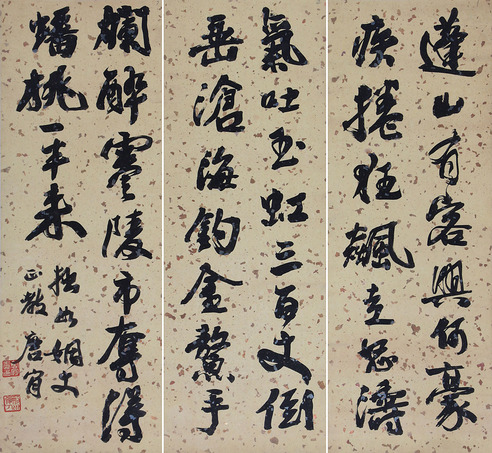 蓬山有客興何豪
疾捲狂飆走怒濤
氣吐玉虹三百丈倒
垂滄海釣金鰲手
爛醉零陵市奪得
蟠桃一半來
拙如姻丈
正教 唐肎